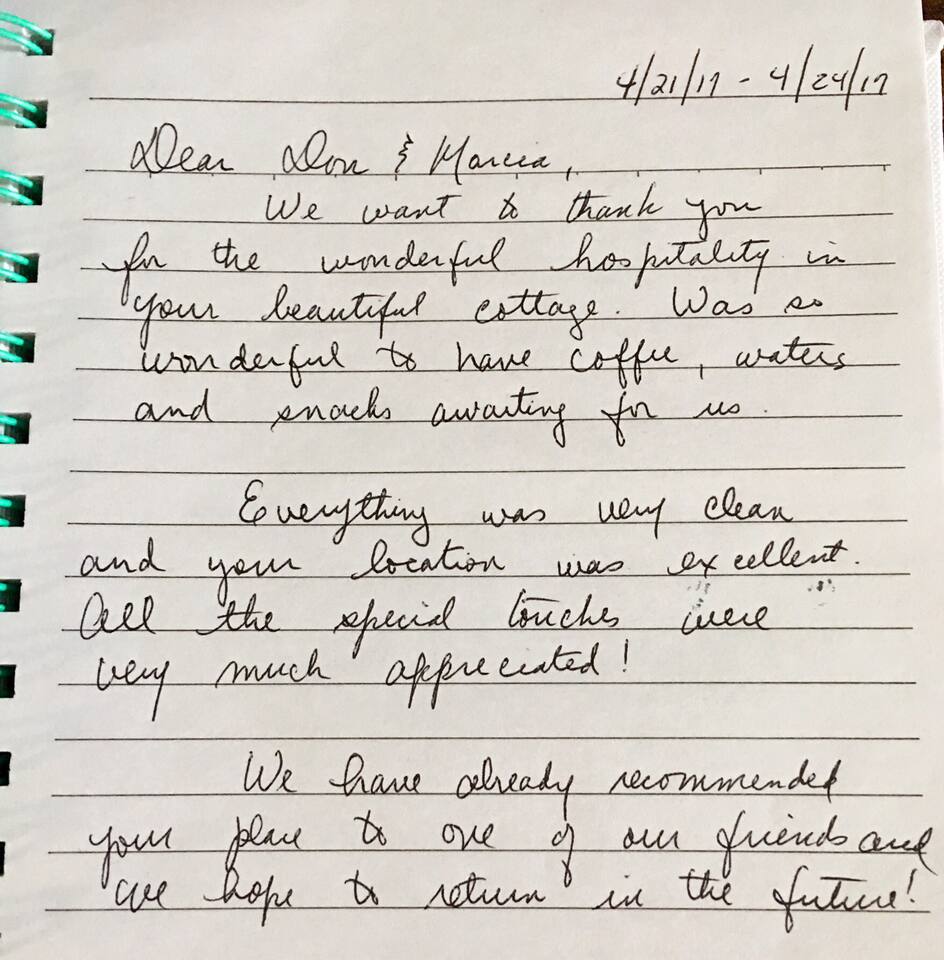 4/21/17 - 4/24/17
Dear Don & Marcia,
We want to thank you
for the wonderful hospitality in
your beautiful cottage. Was so
wonderful to have coffee, waters
and snacks awaiting for us.
Everything was very clean
and your location was excellent.
All the special touches were
very much appreciated!
We have already recommended
your place to one of our friends and
we hope to return in the future!